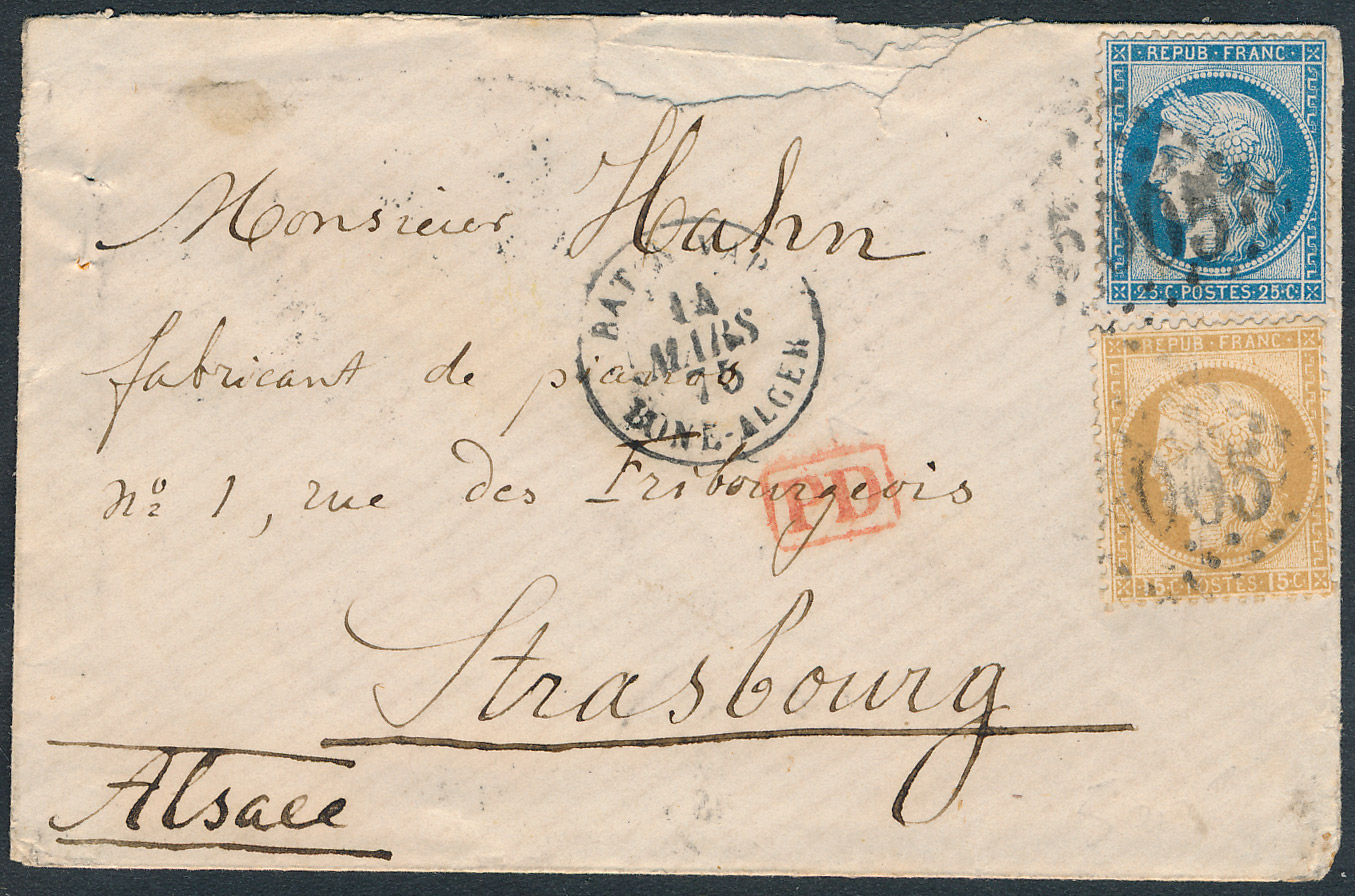 REPUB · FRANC ·
25 · C · POSTES · 25 · C ·
REPUB · FRANC ·
15 · C · POSTES · 15 · C ·
Monsieur Hahn
BAT
14
MARS
75
BONE-ALGER
fabricant de pianos
PD
nº 1, rue des Fribourgeois
Strasbourg
Alsace